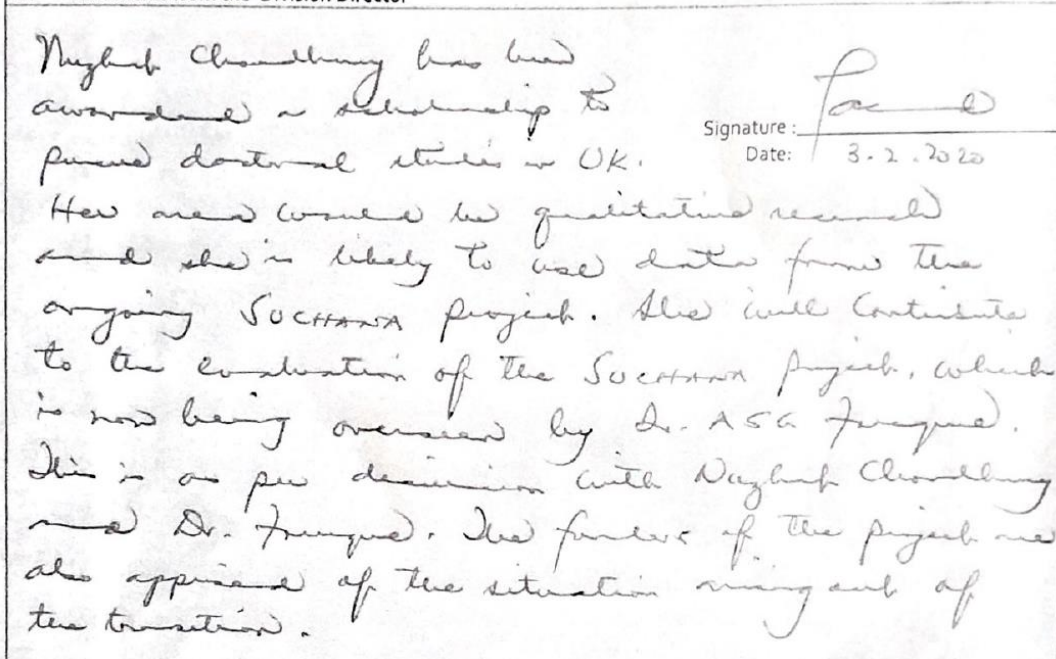 Division Director
Chowdhury has been
awarded a scholarship to
pursue doctoral studies in UK.
Her area would be qualitative research
and she is likely to use data from the
ongoing SUCHANA project. She will contribute
to the evaluation of the SUCHANA project, which
is now being overseen by Dr. ASG Faruque.
This is as per discussion with Chowdhury
and Dr. Faruque. The funders of the project are
also apprised of the situation arising out of
the transition.
Signature :
Date: 3.2.2020